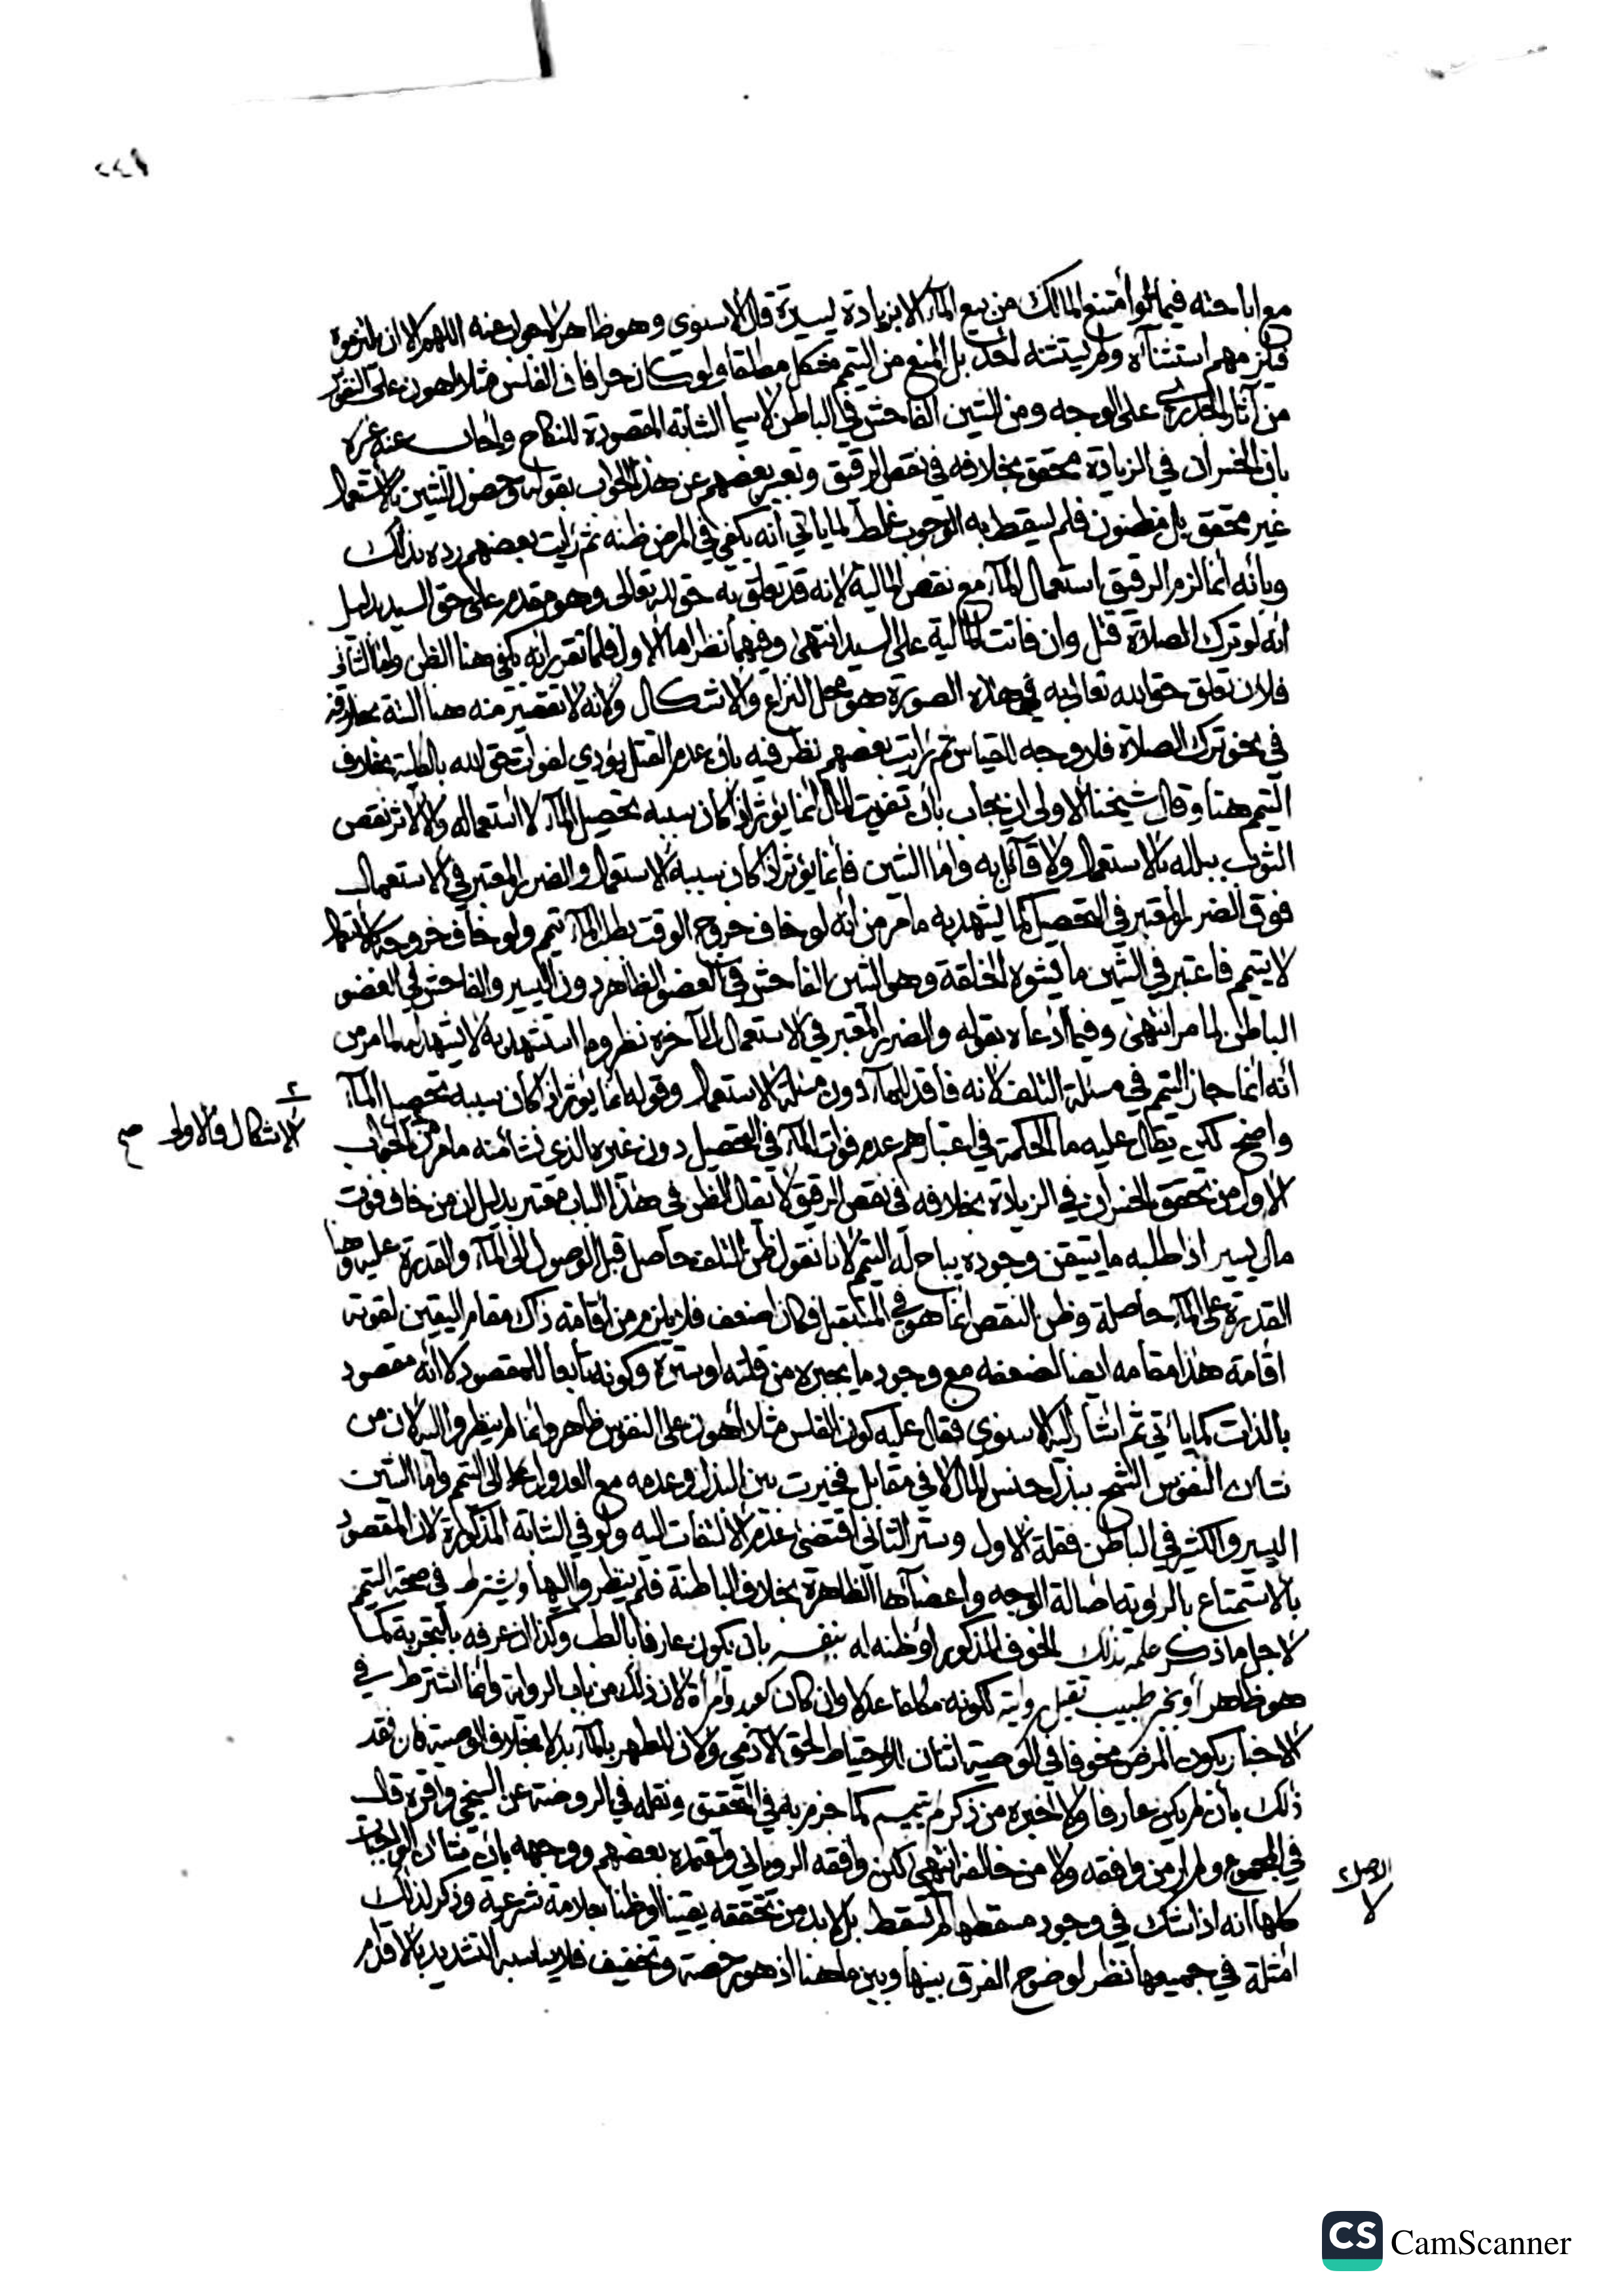 ٢٤٢
مع اباحته فيما لو امتنع المالك من بيع المآء الا بزيادة يسيرة قال الاسنوى وهو ظاهر لا جواب عنه اللهم الا ان يلتزموه
فيلزمهم استثنآؤه ولم يستثنه احد بل المنع من التيمم مشكل مطلقا ولو كان حرا فان الفلس مثلا اهون على النفوس
من آثار الجدري على الوجه ومن الشين الفاحش في الباطن لا سيما الشابة المقصودة للنكاح واجاب عنه غيره
بان الخسران في الزيادة محقق بخلافه في نقص الرقيق وتعبير بعضهم عن هذا الجواب بقوله وحصول الشين بالاستعمال
غير محقق بل مظنون فلم يسقط به الوجوب غلط لما ياتي انه يكفي في المرض ظنه ثم رايت بعضهم رده بذلك
وبانه انما لزم الرقيق استعمال المآء مع نقص المالية لانه قد تعلق به حق الله تعالى وهو مقدم على حق السيد بدليل
انه لو ترك الصلاة قتل وان فاتت المالية على السيد انتهى وفيهما نظر اما الاول فلما تقرر انه يكفي هنا الظن واما الثاني
فلان تعلق حق الله تعالى به في هذه الصورة هو محل النزاع والاشكال ولانه لا تقصير منه هنا البتة بخلافه
في نحو ترك الصلاة فلا وجه للقياس ثم رايت بعضهم نظر فيه بان عدم القتل يؤدي لفوات حق الله بالكلية بخلاف
التيمم هنا وقال شيخنا الاولى ان يجاب بان تفويت المال انما يؤثر اذا كان سببه تحصيل المآء لا استعماله والا لاثر نقص
الثوب ببلله بالاستعمال ولا قائل به واما الشين فانما يؤثر اذا كان سببه الاستعمال والضرر المعتبر في الاستعمال
فوق الضرر المعتبر في التحصيل كما يشهد به ما مر من انه لو خاف خروج الوقت بطلب المآء تيمم ولو خاف خروجه بالاستعمال
لا يتيمم فاعتبر في الشين ما يشوه الخلقة وهو الشين الفاحش في العضو الظاهر دون اليسير والفاحش في العضو
الباطن لما مر انتهى وفيما ادعاه بقوله والضرر المعتبر في الاستعمال الى آخره نظر وما استشهد به لا يشهد له لما مر من
انه انما جاز التيمم في مسئلة التلف لانه فاقد للمآء دون مسئلة الاستعمال وقوله انما يؤثر اذا كان سببه تحصيل المآء
واضح لكن يقال عليه ما الحكمة في اعتبارهم عدم فوات المآء في التحصيل دون غيره الذي نشا منه ما مر من الجواب
الاشكال فالاولى صح
الاول من تحقق الخسران في الزيادة بخلافه في نقص الرقيق لا يقال الظن في هذا الباب معتبر بدليل ان من خاف فوت
مال يسير اذا طلبه ما يتيقن وجوده يباح له التيمم لانا نقول ظن التلف حاصل قبل الوصول الى المآء والقدرة عليه وهنا
القدرة على المآء حاصلة وظن النقص انما هو في المستقبل فكان اضعف فلا يلزم من اقامة ذاك مقام اليقين لقوته
اقامة هذا مقامه ايضا لضعفه مع وجود ما يجبره من قلته او ستره وكونه تابعا للمقصود لا انه مقصود
بالذات كما ياتي ثم اشار اليه الاسنوي فقال عليه كون الفلس مثلا اهون على النفوس ظاهر وانما لم ينظروا اليه لان من
شان النفوس الشح ببذل جنس المال لا في مقابل فخيرت بين البذل وعدمه مع العدول الى التيمم واما الشين
اليسير والكثير في الباطن فقلة الاول وستر الثاني اقتضى عدم الالتفات اليه ولو في الشابة المذكورة لان المقصود
بالاستمتاع بالرؤية اصالة الوجه واعضآؤها الظاهرة بخلاف الباطنة فلم ينظروا اليها ويشترط في صحة التيمم
لاجل ما ذكر علمه بذلك الخوف المذكور او ظنه له بنفسه بان يكون عارفا بالطب وكذا ان عرفه بالتجربة كما
هو ظاهر او بخبر طبيب تقبل روايته لكونه مكلفا عدلا وان كان كعبد وامرأة لان ذلك من باب الرواية وانما اشترط في
الاخبار بكون المرض مخوفا في الوصية اثنان للاحتياط لحق الآدمي ولان للطهر بالمآء بدلا بخلاف الوصية فان فقد
ذلك بان لم يكن عارفا ولا اخبره من ذكر لم يتيمم كما جزم به في التحقيق ونقله في الروضة عن السنجي واقره قال
في المجموع ولم ار من وافقه ولا من خالفه انتهى لكن وافقه الروياني واعتمده بعضهم ووجهه بان شان الواجبات
كلها انه اذا شك في وجود مسقطها لم تسقط بل لا بد من تحققه يقينا او ظنا بعلامة شرعية وذكر لذلك
امثلة في جميعها نظر لوضوح الفرق بينها وبين ما هنا اذ هو رخصة وتخفيف فلا يناسبه التشديد بالاقدام
CS CamScanner